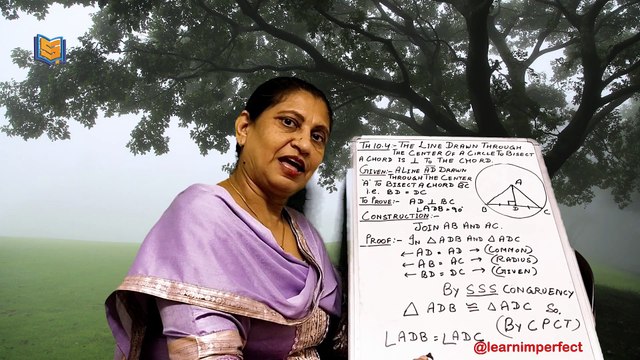 TH 10.4 - THE LINE DRAWN THROUGH
THE CENTER OF A CIRCLE TO BISECT
A CHORD IS ⊥ TO THE CHORD.
GIVEN:- A LINE AD DRAWN
THROUGH THE CENTER
'A' TO BISECT A CHORD BC
i.e. BD = DC
TO PROVE:- AD ⊥ BC
∠ADB = 90°
A
B D C
CONSTRUCTION:-
JOIN AB AND AC.
PROOF:- IN △ ADB AND △ ADC
← AD = AD → (COMMON)
← AB = AC → (RADIUS)
← BD = DC → (GIVEN)
BY SSS CONGRUENCY
△ ADB ≅ △ ADC So,
∠ADB = ∠ADC (BY CPCT)
@learnimperfect